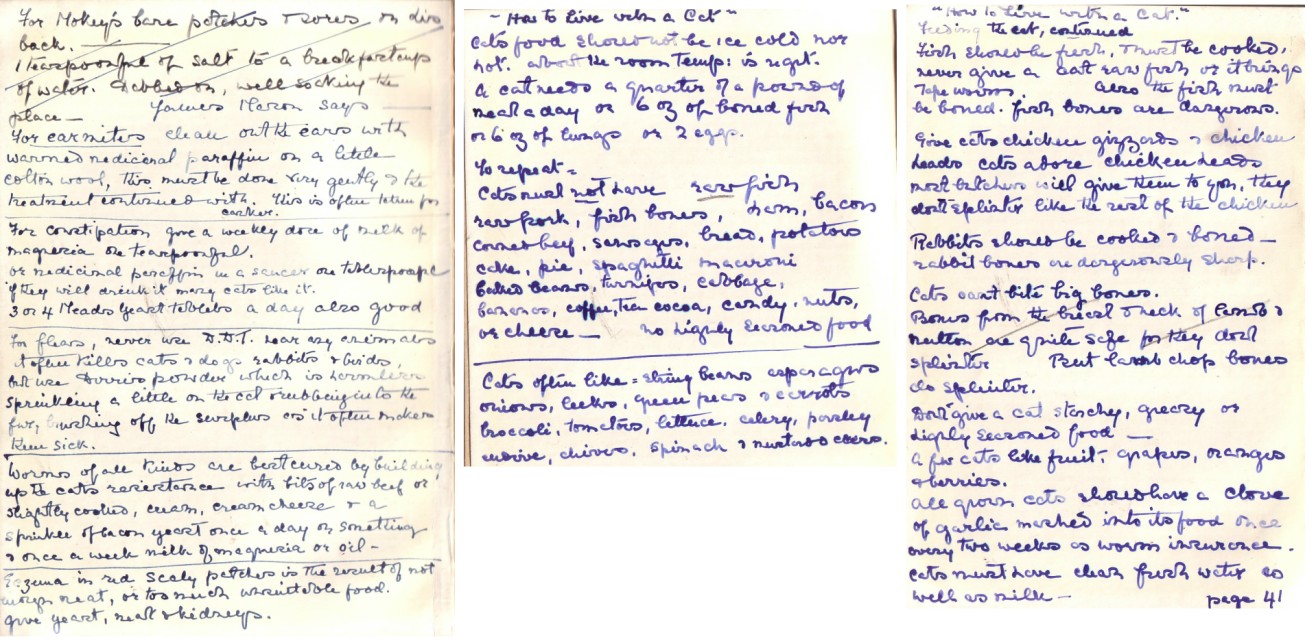 For Mokey's bare patches & sores on his
back. —
1 teaspoonful of salt to a breakfastcup
of water. Dabbed on, well soaking the
place — James Mason says —
For earmites clean out the ears with
warmed medicinal paraffin on a little
cotton wool, this must be done very gently & the
treatment continued with. This is often taken for
canker.
For constipation give a weekly dose of milk of
magnesia one teaspoonful.
or medicinal paraffin in a saucer one tablespoonful
if they will drink it many cats like it.
3 or 4 Meads yeast tablets a day also good
For fleas, never use D.D.T. near any animals
it often kills cats & dogs rabbits & birds,
but use Derris powder which is harmless
sprinkling a little on the cat & rubbing into the
fur, brushing off the surplus as it often makes
them sick.
Worms of all kinds are best cured by building
up the cats resistance with bits of raw beef or
slightly cooked, cream, cream cheese & a
sprinkle of bacon yeast once a day on something
& once a week milk of magnesia or oil —
Eczema in red scaly patches is the result of not
enough meat, or too much unsuitable food.
give yeast, meat & kidneys.
"How to live with a Cat"
Cats food should not be ice cold nor
hot. about the room temp: is right.
A cat needs a quarter of a pound of
meat a day or 6 oz of boned fish
or 6 oz of lungs or 2 eggs.
To repeat =
Cats must not have raw fish
raw pork, fish bones, ham, bacon
corned beef, sausages, bread, potatoes
cake, pie, spaghetti macaroni
baked beans, turnips, cabbage,
bananas, coffee, tea cocoa, candy, nuts,
or cheese — no highly seasoned food
Cats often like = string beans asparagus
onions, leeks, green peas & carrots
broccoli, tomatoes, lettuce. celery, parsley
endive, chives. spinach & mustard & cress.
"How to live with a Cat."
Feeding the cat, continued
Fish should be fresh, & must be cooked,
never give a cat raw fish or it brings
Tape worms. Also the fish must
be boned. fish bones are dangerous.
Give cats chicken gizzards & chicken
heads cats adore chicken heads
most butchers will give them to you, they
dont splinter like the rest of the chicken
Rabbits should be cooked & boned —
rabbit bones are dangerously sharp.
Cats cant bite big bones.
Bones from the breast & neck of lamb &
mutton are quite safe for they dont
splinter But lamb chop bones
do splinter.
Dont give a cat starchy, greasy or
highly seasoned food —
A few cats like fruit. grapes, oranges
& berries.
All grown cats should have a clove
of garlic mashed into its food once
every two weeks as worm insurance.
Cats must have clean fresh water as
well as milk —
page 41